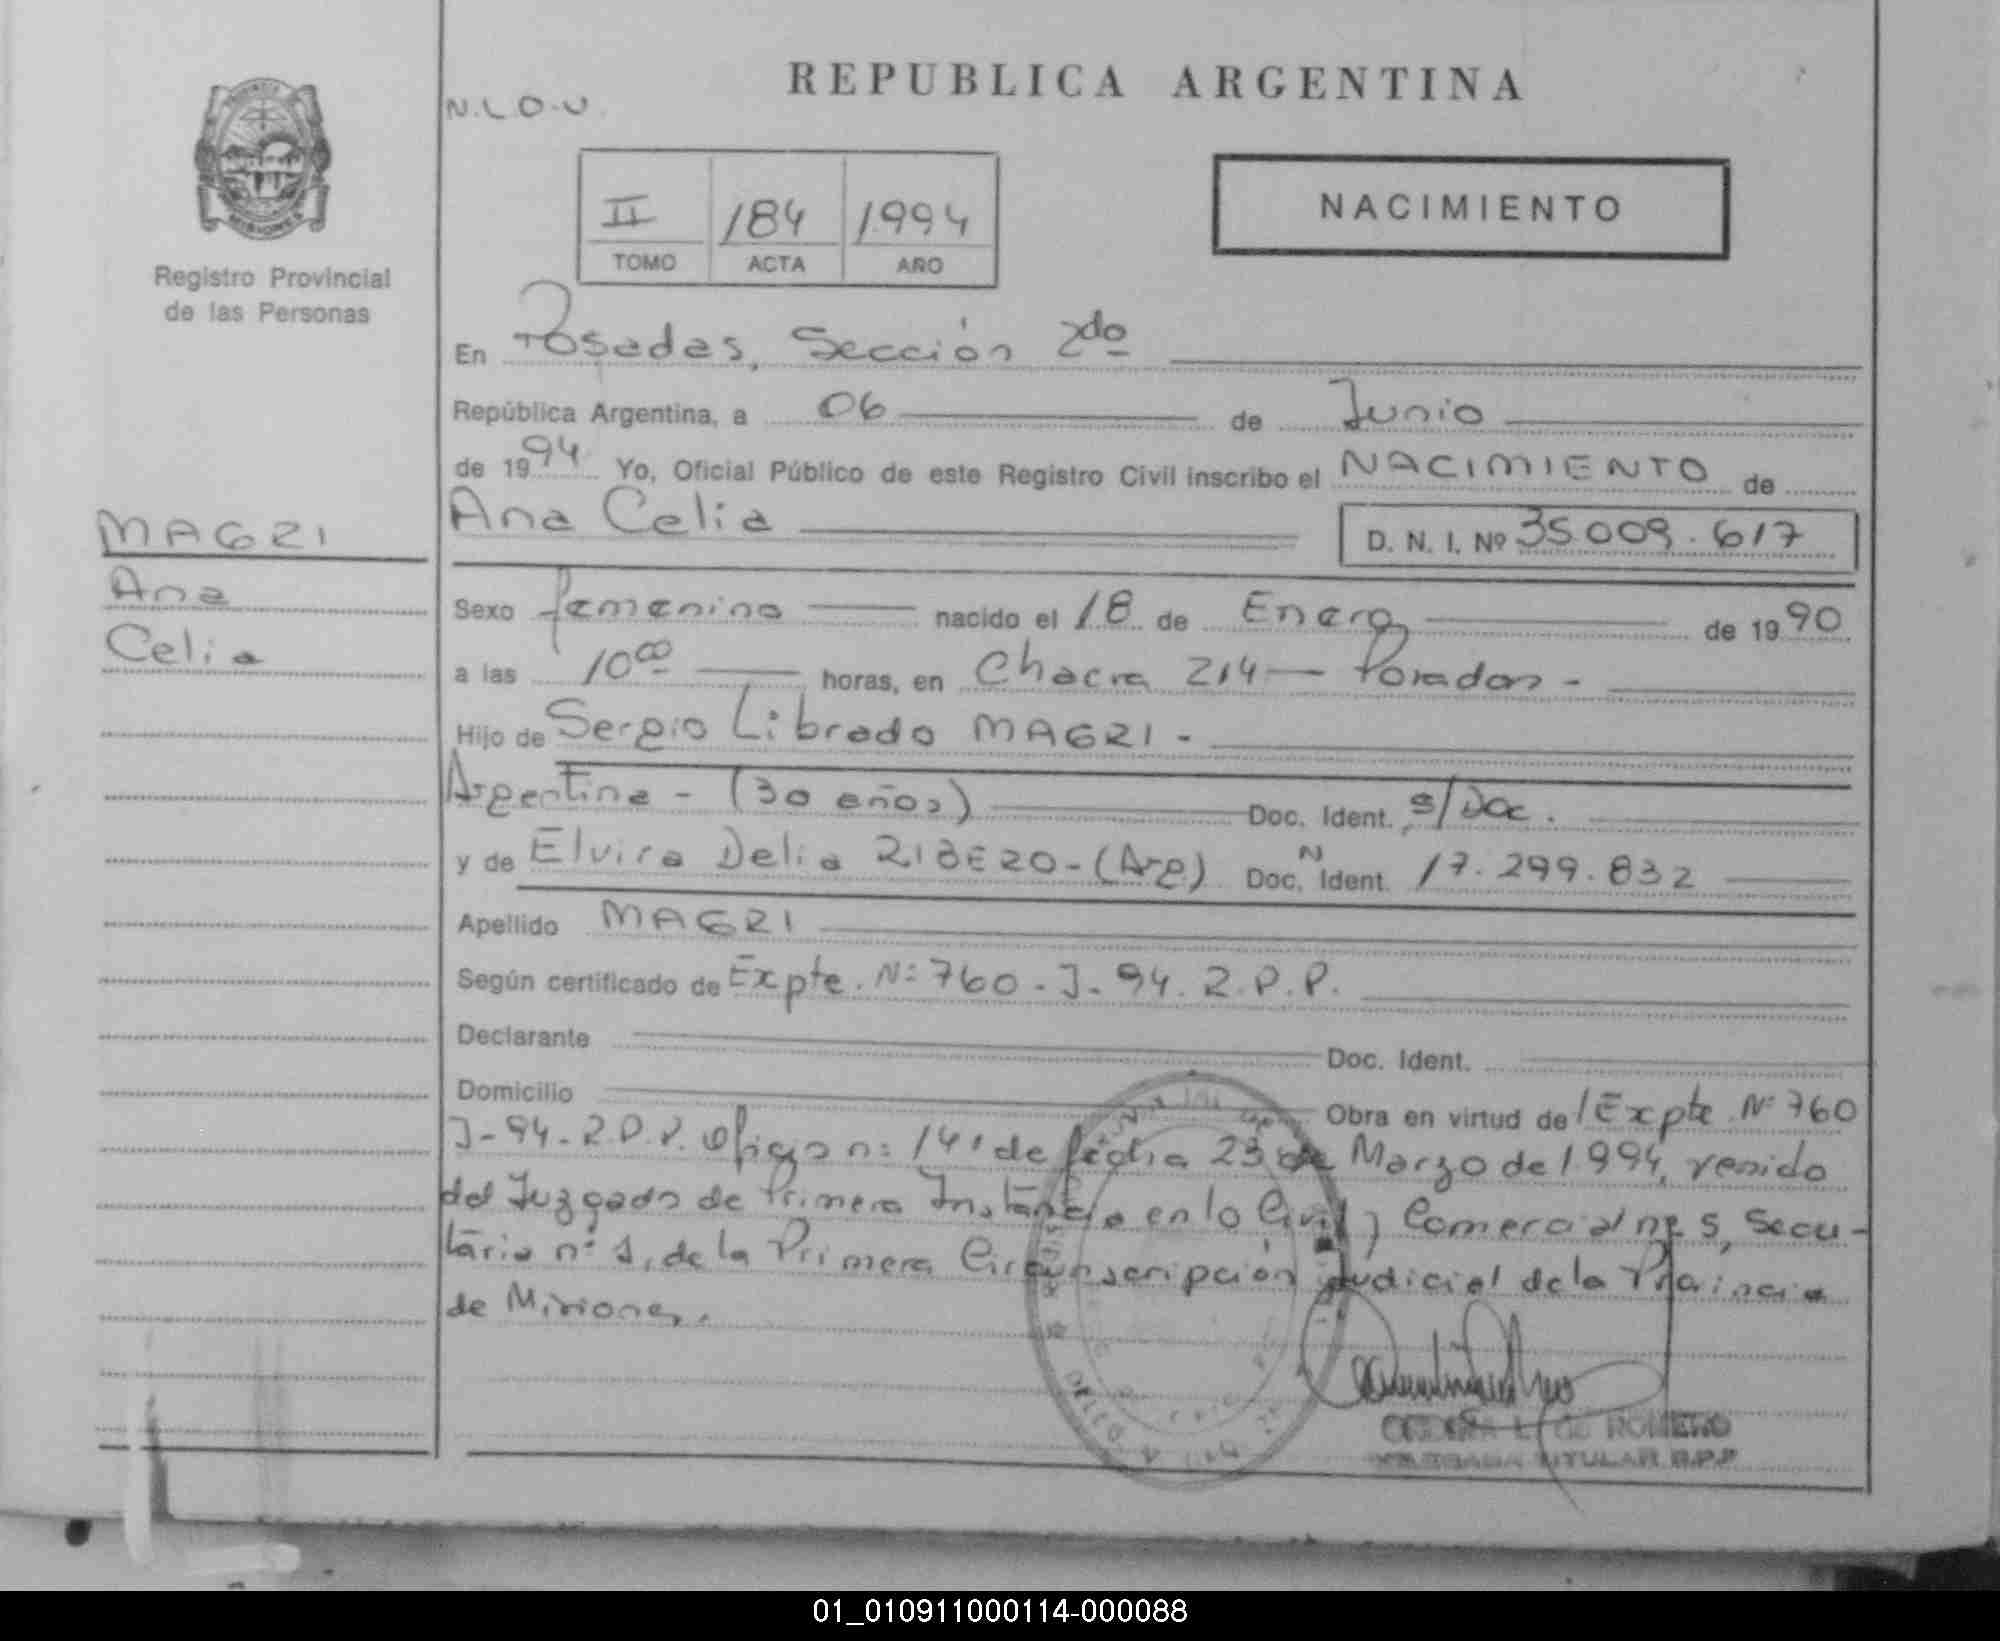 REPUBLICA ARGENTINA
N.L.O.U.
MISIONES
Registro Provincial
de las Personas
II 184 1994
TOMO ACTA AÑO
NACIMIENTO
En Posadas, Sección 2do
República Argentina, a 06 de Junio
de 1994 Yo, Oficial Público de este Registro Civil inscribo el NACIMIENTO de
Ana Celia D. N. I. Nº 35.009.617
MAGRI
Ana
Celia
Sexo femenino nacido el 18 de Enero de 1990
a las 10oo horas, en Chacra 214 - Posadas -
Hijo de Sergio Librado MAGRI -
Argentina - (30 años) Doc. Ident. s/Doc.
y de Elvira Delia RIBERO - (Arg) Doc. N Ident. 17.299.832
Apellido MAGRI
Según certificado de Expte. Nº 760 - J - 94. R.P.P.
Declarante Doc. Ident.
Domicilio Obra en virtud de / Expte. Nº 760
J - 94 - R.P.P. Oficio nº 141 de fecha 23 de Marzo de 1994, venido
del Juzgado de Primera Instancia en lo Civil y Comercial nº 5, Secre-
taria nº 1, de la Primera Circunscripción Judicial de la Provincia
de Misiones.
L. DE ROMERO
TITULAR R.P.P
01_010911000114-000088